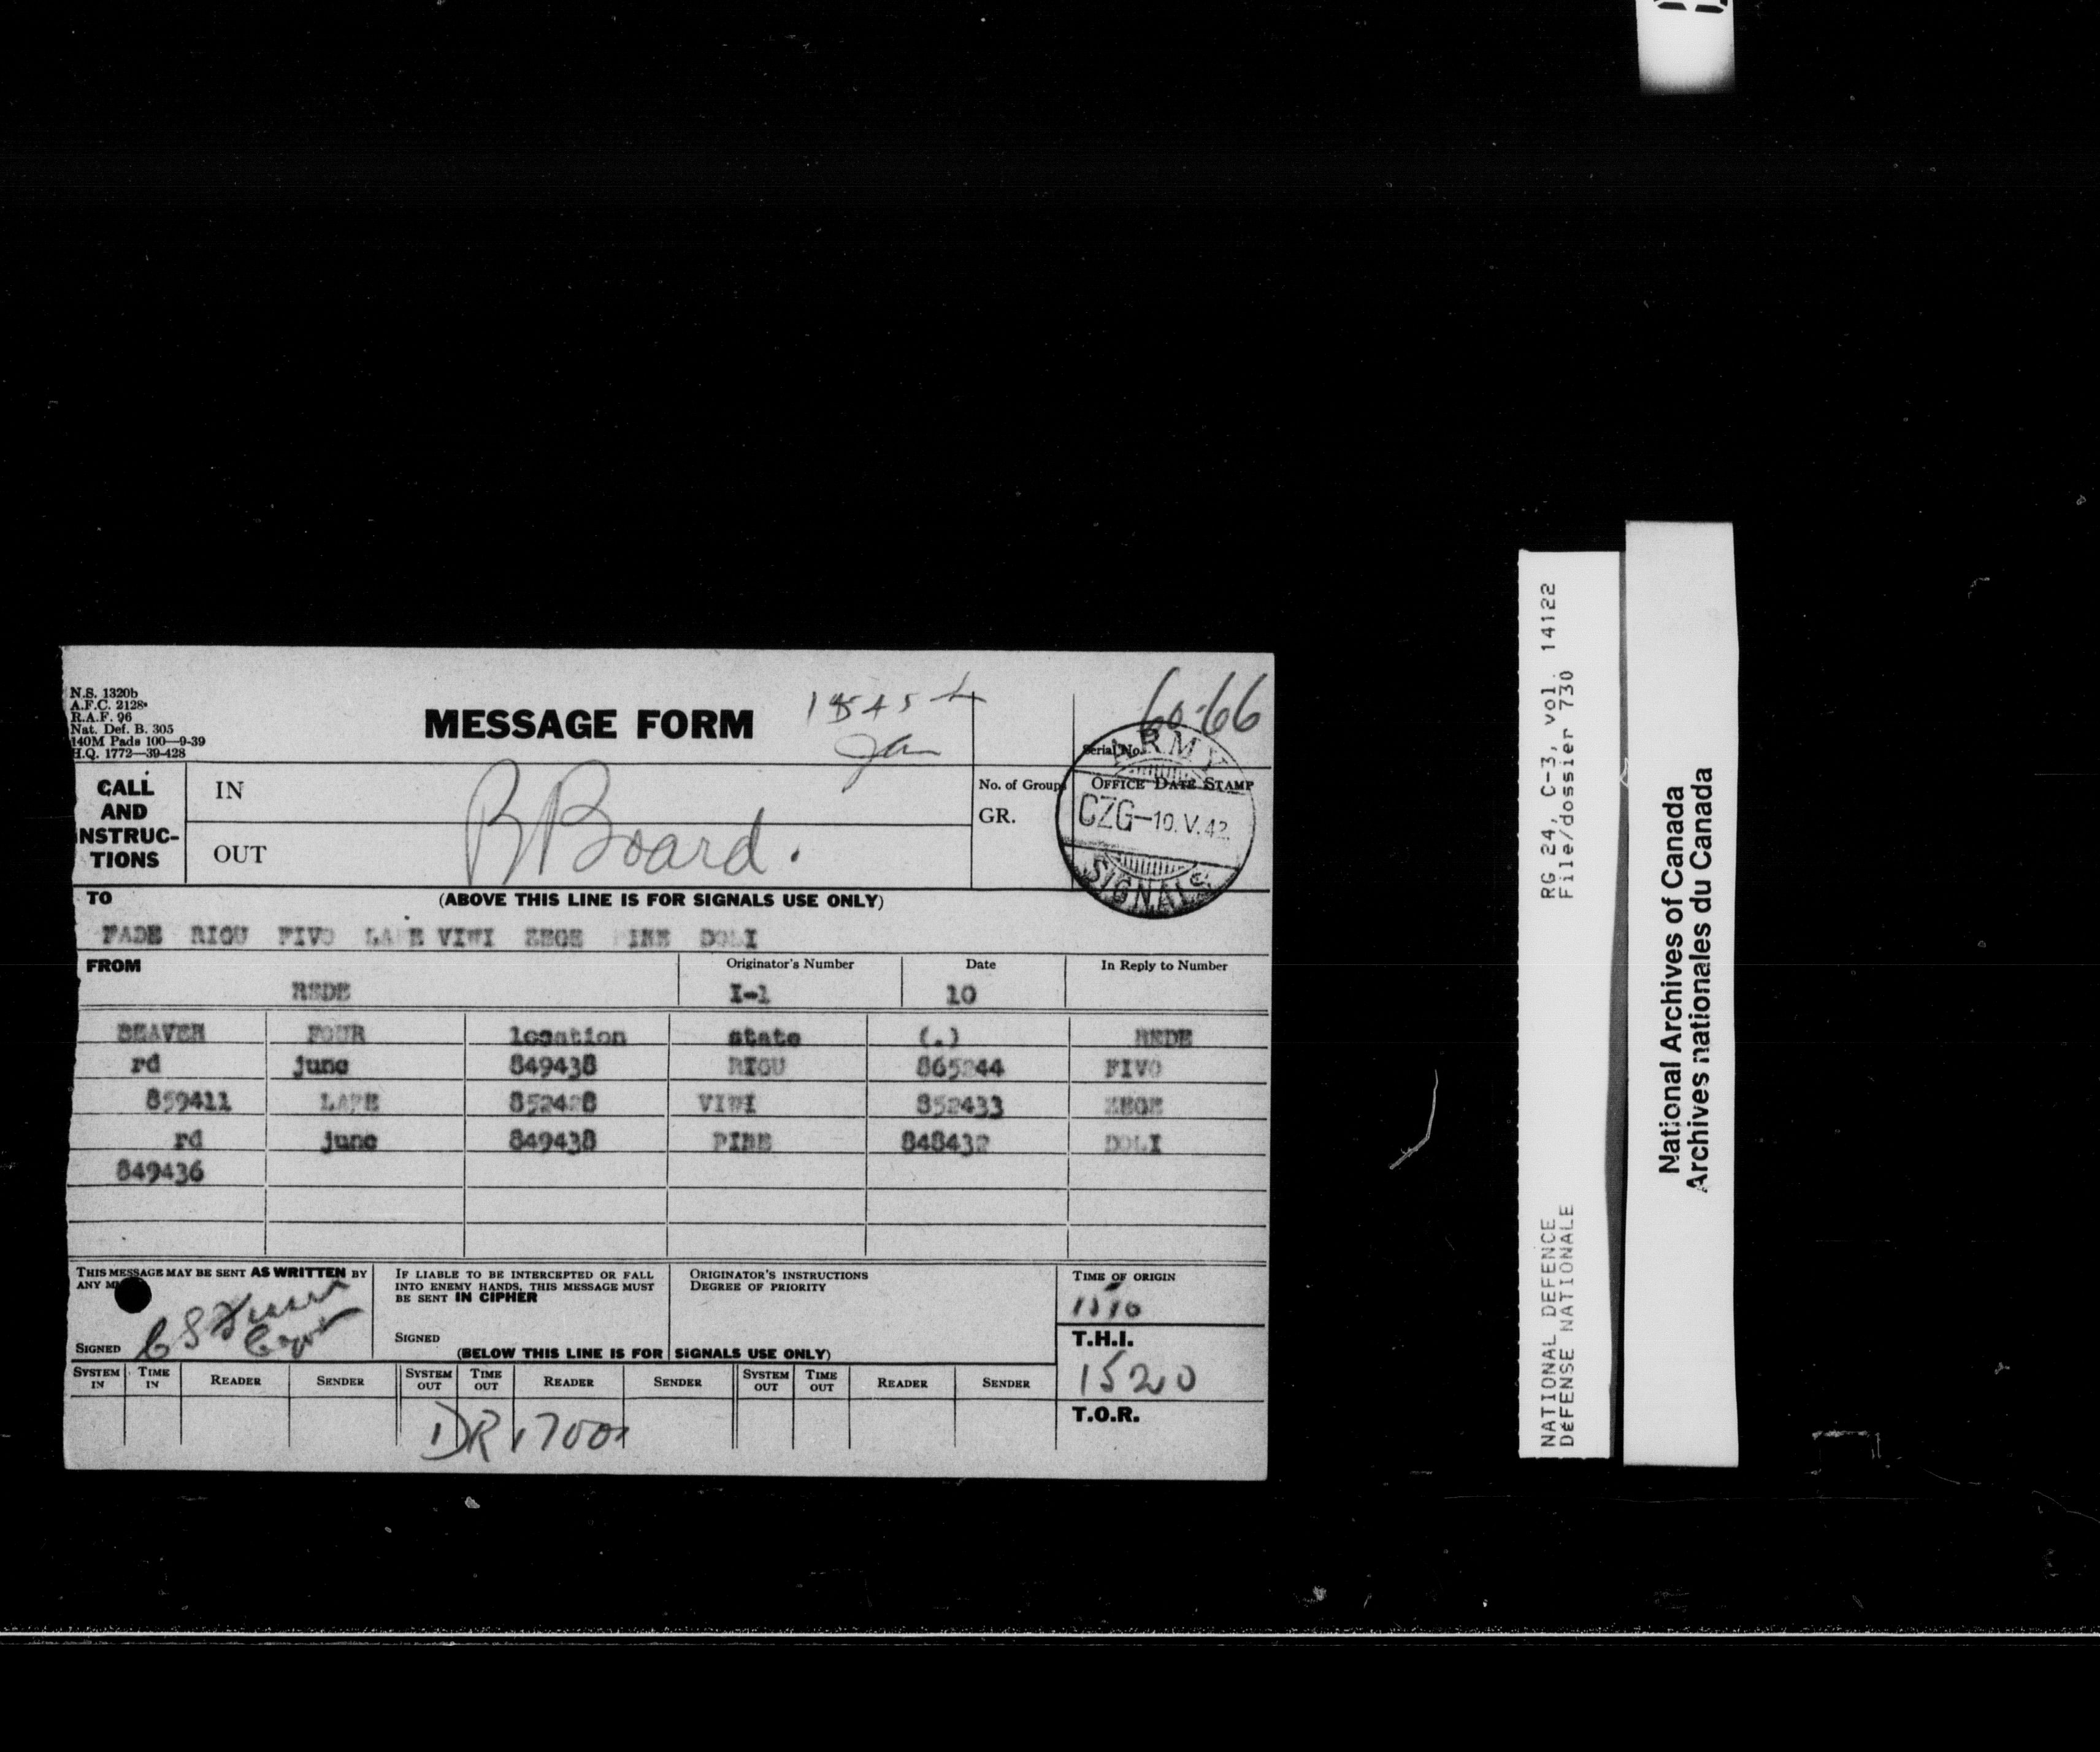 N.S. 1320b
A.F.C. 2128
R.A.F. 96
Nat. Def. B. 305
140M Pads 100—9-39
H.Q. 1772—39-428
MESSAGE FORM
60-66
Serial No.
CALL AND INSTRUC-TIONS
IN
OUT
B Board.
No. of Groups
GR.
OFFICE DATE STAMP
ARMY
CZG—10.V.42.
SIGNALS
TO
(ABOVE THIS LINE IS FOR SIGNALS USE ONLY)
FADE RIGU FIVO LAPE VIWI ZEGE PINE DOLI
FROM
REDE
Originator's Number
I-1
Date
10
In Reply to Number
BEAVER FOUR location state (.) REDE
rd junc 849438 RIGU 865244 FIVO
859411 LAPE 852428 VIWI 852433 ZEGE
rd junc 849438 PINE 848432 DOLI
849436
THIS MESSAGE MAY BE SENT AS WRITTEN BY
ANY
SIGNED
IF LIABLE TO BE INTERCEPTED OR FALL
INTO ENEMY HANDS, THIS MESSAGE MUST
BE SENT IN CIPHER
SIGNED
ORIGINATOR'S INSTRUCTIONS
DEGREE OF PRIORITY
TIME OF ORIGIN
1510
T.H.I.
1520
T.O.R.
(BELOW THIS LINE IS FOR SIGNALS USE ONLY)
SYSTEM IN TIME IN READER SENDER SYSTEM OUT TIME OUT READER SENDER SYSTEM OUT TIME OUT READER SENDER
DR 1700
RG 24, C-3, vol. 14122
File/dossier 730
NATIONAL DEFENCE
DéFENSE NATIONALE
National Archives of Canada
Archives nationales du Canada